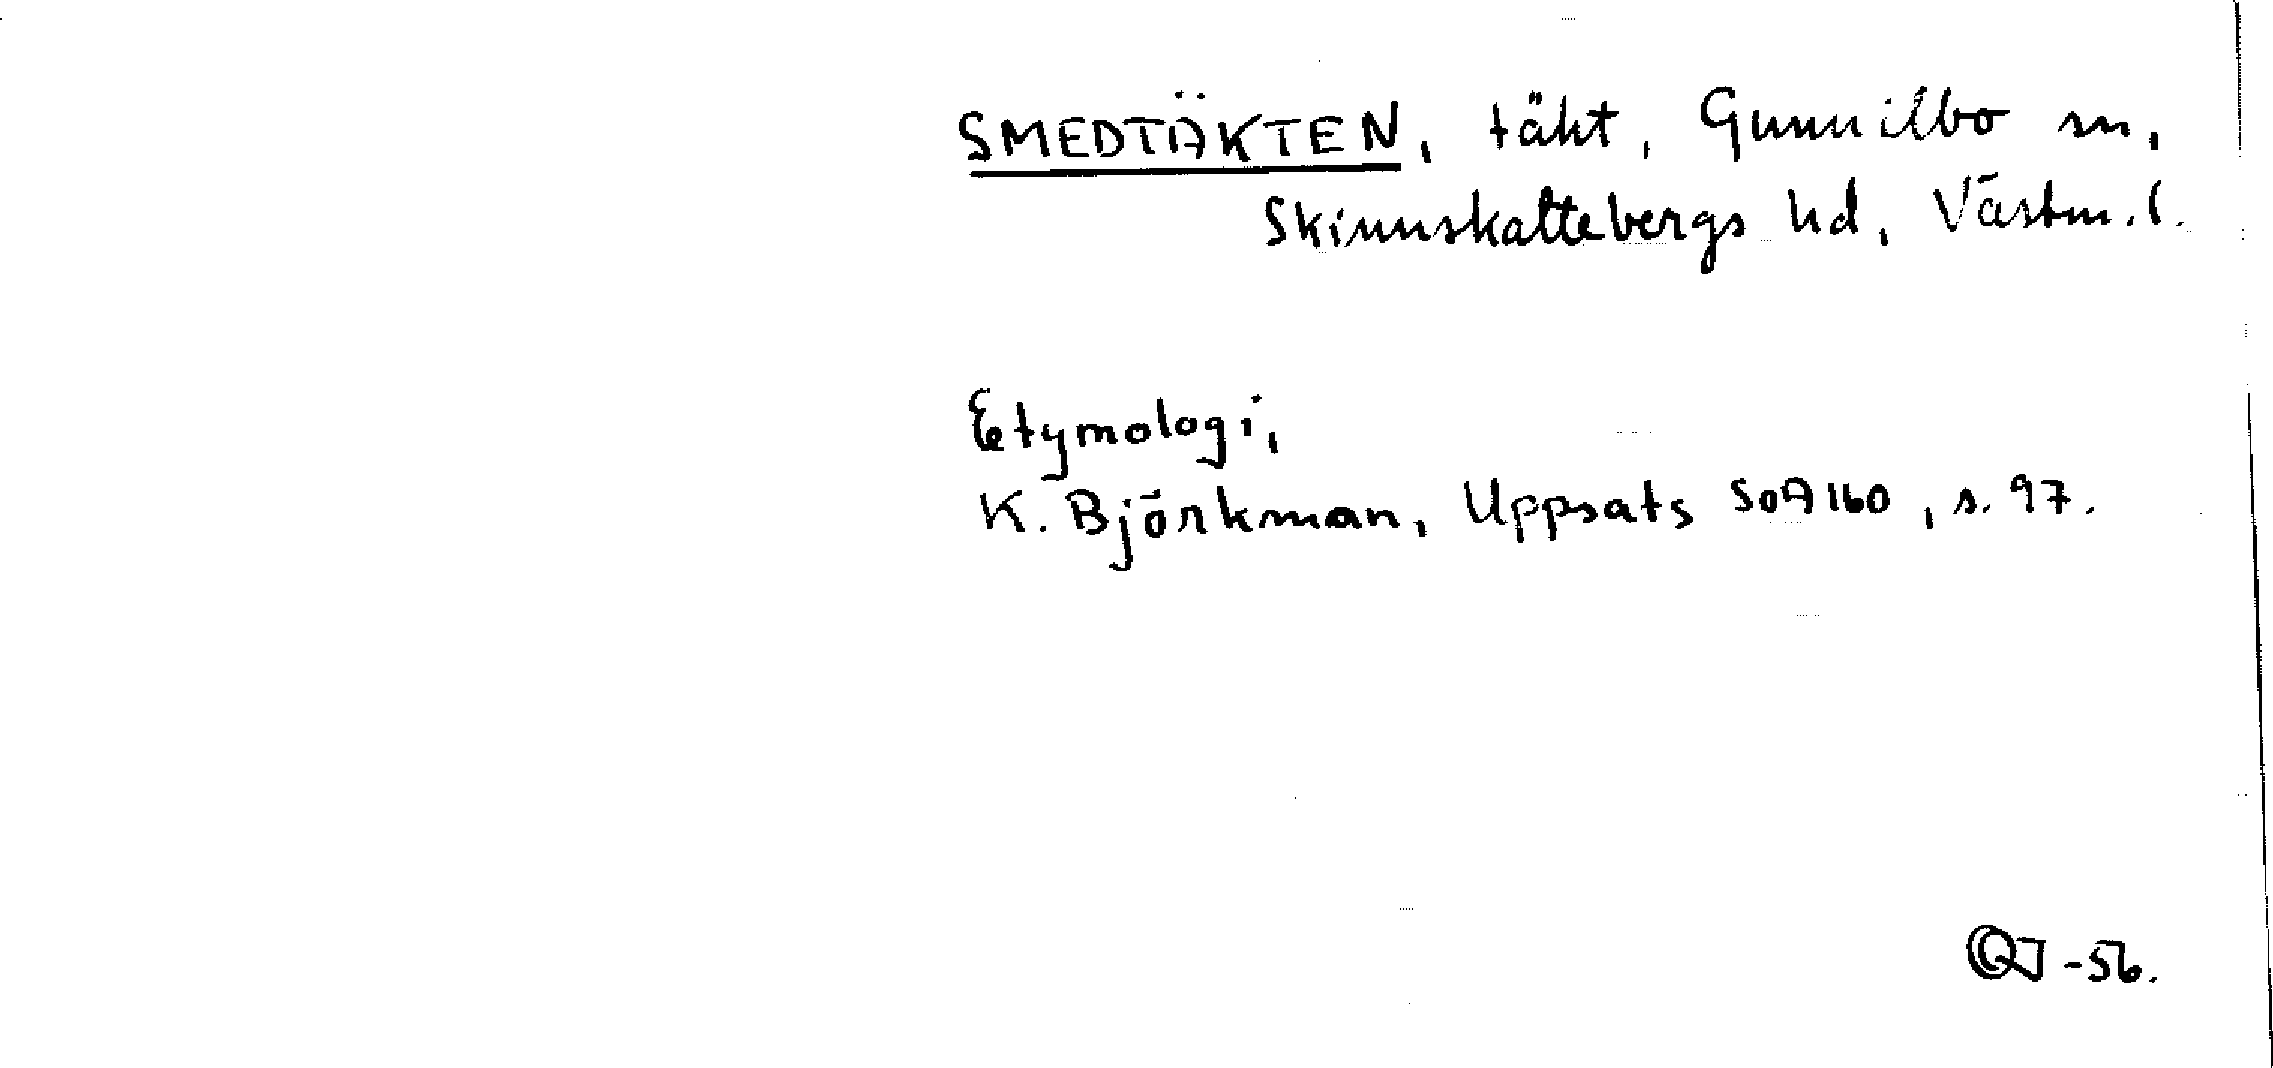 SMEDTÄKTEN, täkt, Gunnilbo sn,
Skinnskattebergs hd, Västm. l.
Etymologi,
K. Björkman, Uppsats SOA 160, s. 97.
-56.